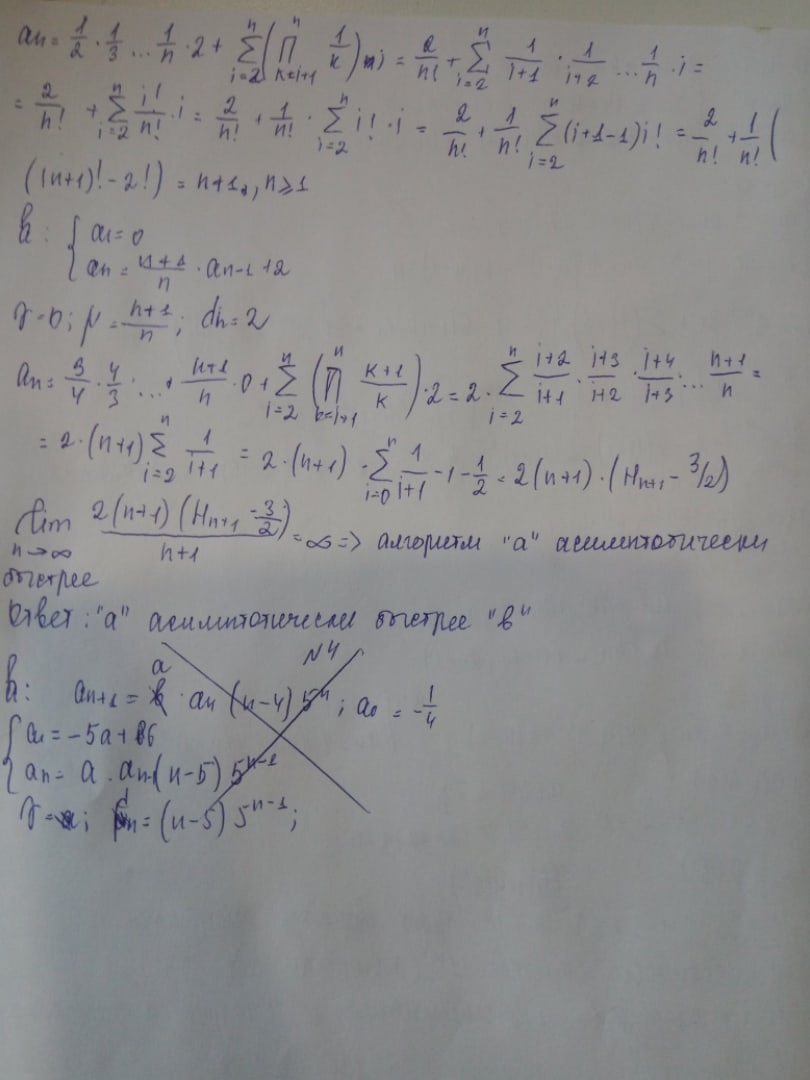 an = 1/2 · 1/3 ... 1/n · 2 + ∑_{i=2}^{n} (∏_{k=i+1}^{n} 1/k) i = 2/n! + ∑_{i=2}^{n} 1/(i+1) · 1/(i+2) ... 1/n · i =
= 2/n! + ∑_{i=2}^{n} i!/n! · i = 2/n! + 1/n! · ∑_{i=2}^{n} i! · i = 2/n! + 1/n! ∑_{i=2}^{n} (i+1-1)i! = 2/n! + 1/n! (
((n+1)! - 2!) = n+1, n ≥ 1
b: { a1 = 0
an = (n+1)/n · an-1 + 2
γ = 0; β = (n+1)/n; dn = 2
an = 3/4 · 4/3 · ... · (n+1)/n · 0 + ∑_{i=2}^{n} (∏_{k=i+1}^{n} (k+1)/k) · 2 = 2 · ∑_{i=2}^{n} (i+2)/(i+1) · (i+3)/(i+2) · (i+4)/(i+3) ... (n+1)/n =
= 2 · (n+1) ∑_{i=2}^{n} 1/(i+1) = 2 · (n+1) · ∑_{i=0}^{n} 1/(i+1) - 1 - 1/2 = 2(n+1) · (Hn+1 - 3/2)
lim_{n→∞} 2(n+1)(Hn+1 - 3/2)/(n+1) = ∞ => алгоритм "а" асимптотически
быстрее
Ответ: "а" асимптотически быстрее "в"
N4
b: an+1 = a · an (n-4) 5^n; a0 = -1/4
{ a1 = -5a + 6
an = a · an-1 (n-5) 5^{n-1}
γ = ; dn = (n-5) 5^{n-1};